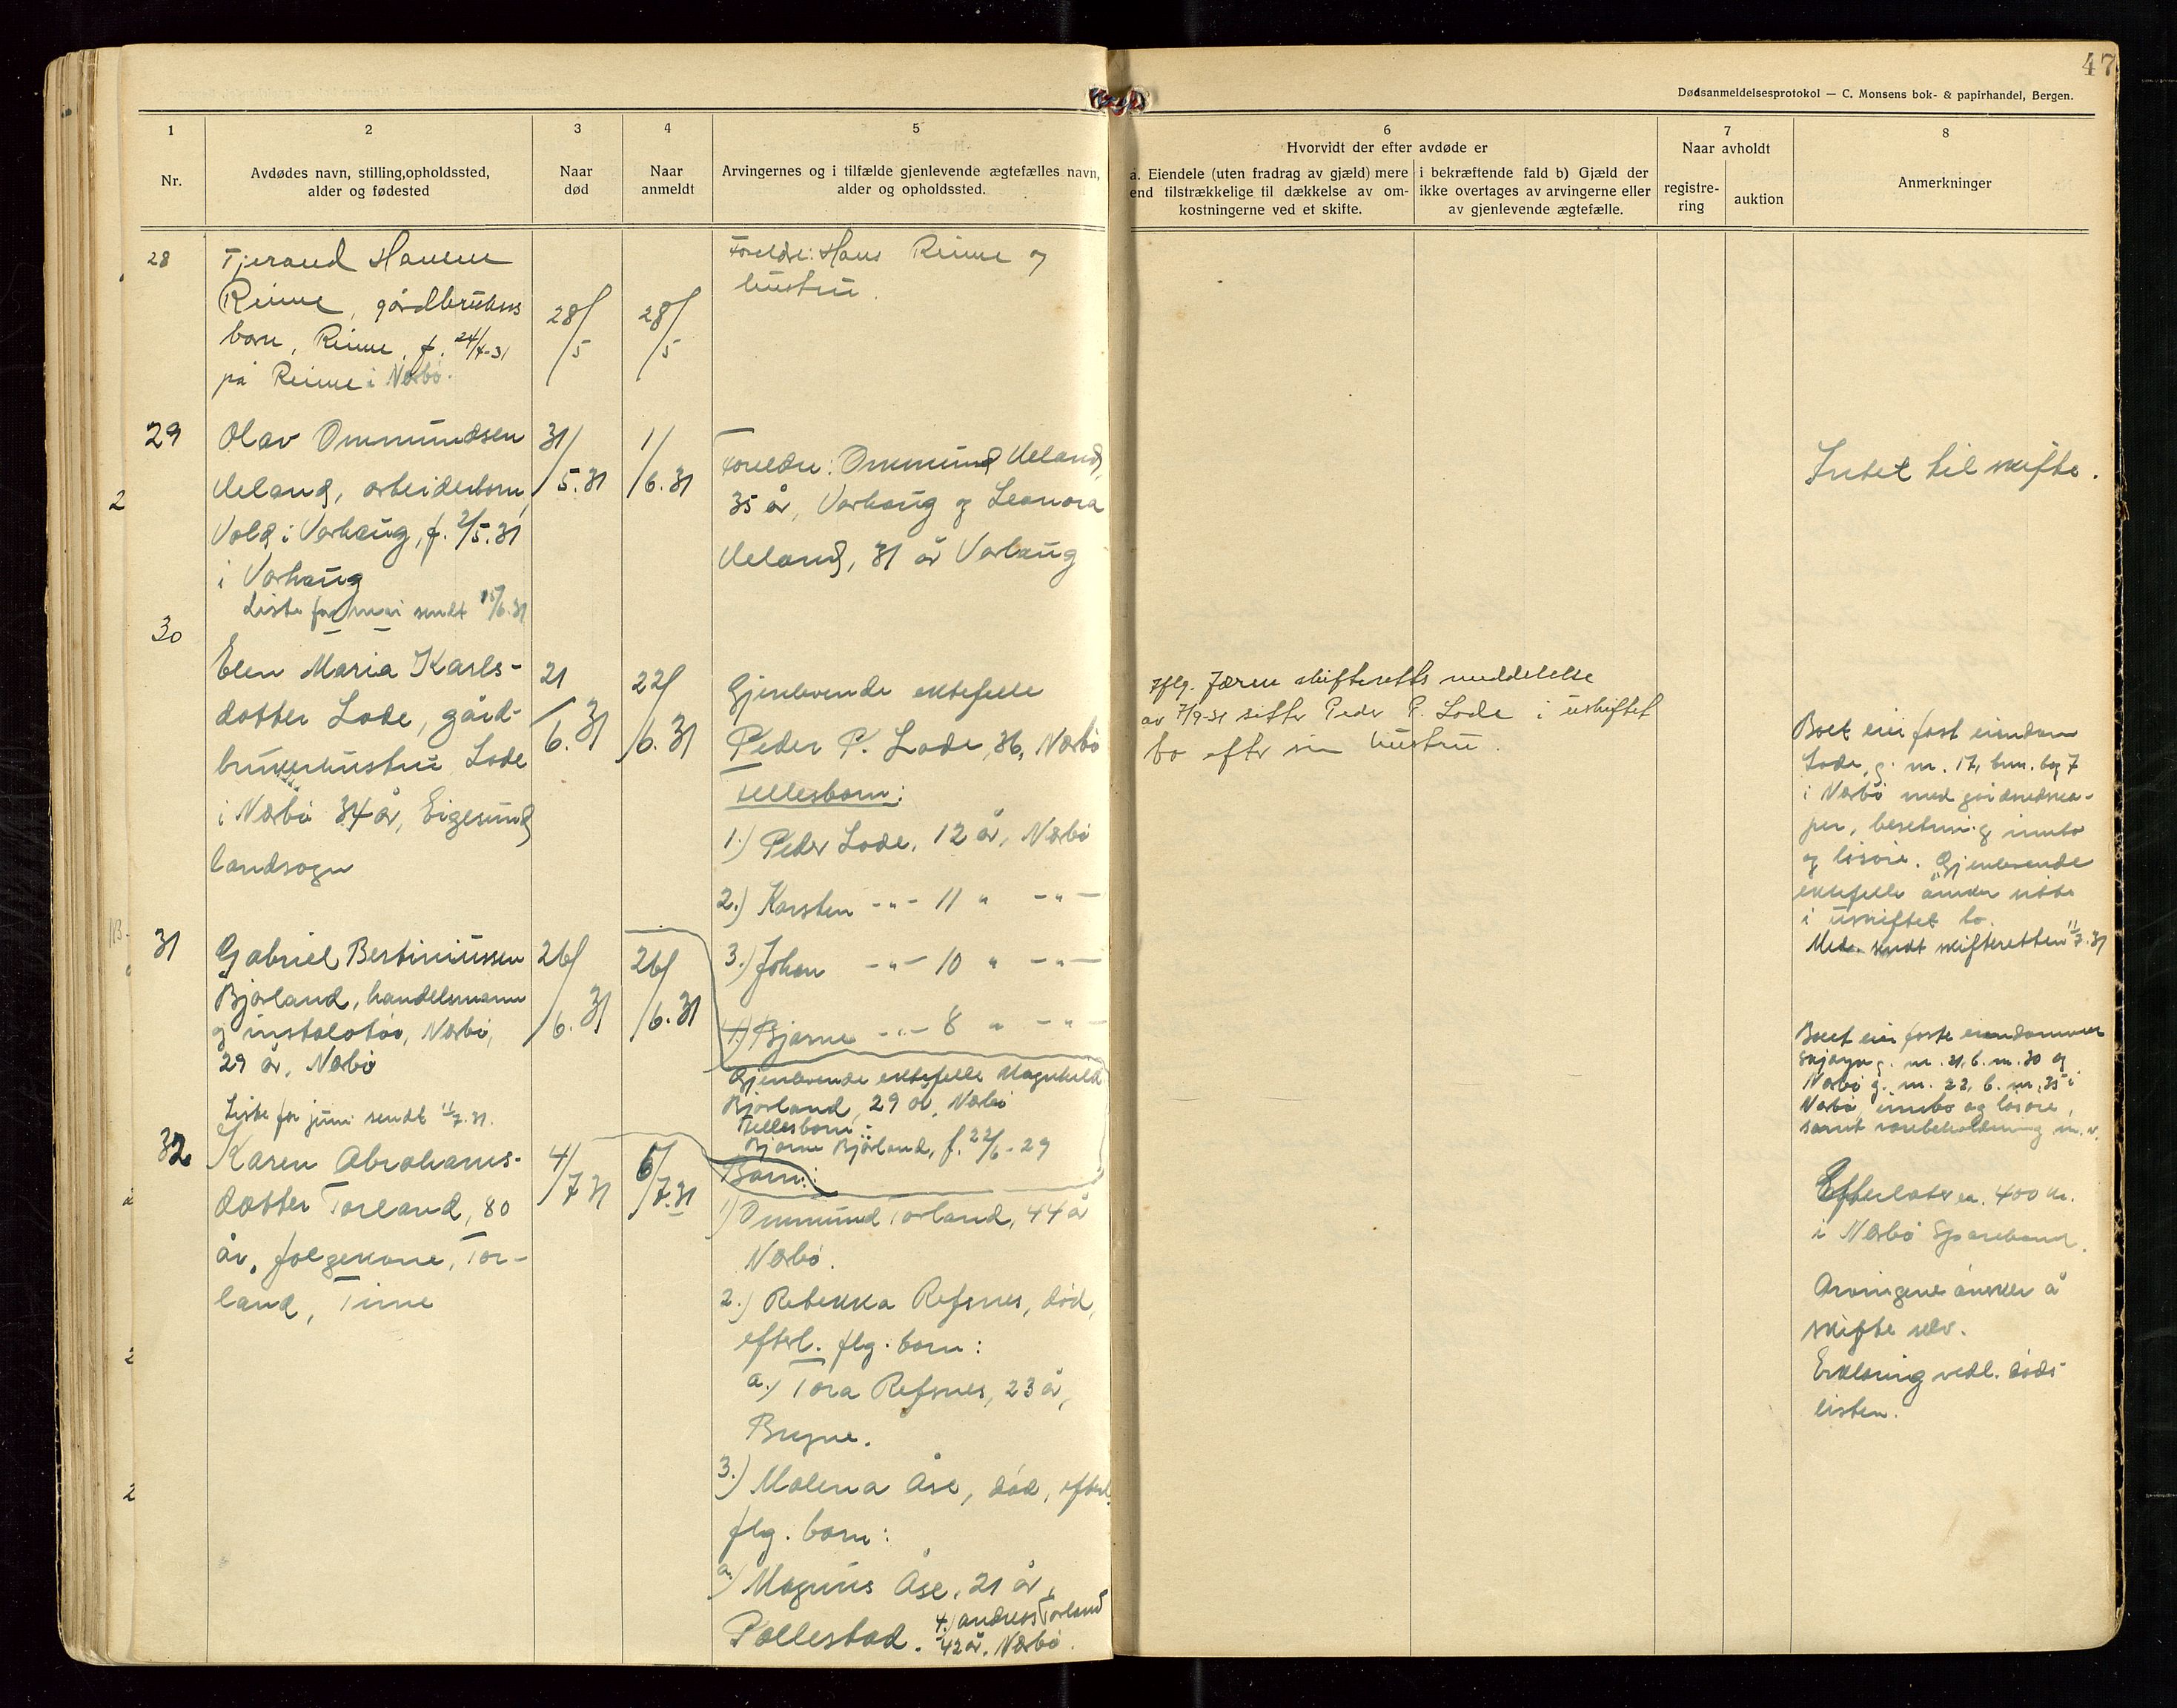 47
Dødsanmeldelsesprotokol — C. Monsens bok- & papirhandel, Bergen.
1
2
3
4
5
6
7
8
Nr.
Avdødes navn, stilling, opholdssted,
alder og fødested
Naar
død
Naar
anmeldt
Arvingernes og i tilfælde gjenlevende ægtefælles navn,
alder og opholdssted.
Hvorvidt der efter avdøde er
a. Eiendele (uten fradrag av gjæld) mere
end tilstrækkelige til dækkelse av om-
kostningerne ved et skifte.
i bekræftende fald b) Gjæld der
ikke overtages av arvingerne eller
av gjenlevende ægtefælle.
Naar avholdt
registre-
ring
auktion
Anmerkninger
28
Tjerand Hansen
Reime, gårdbrukers
barn, Reime, f. 24/4-31
på Reime i Nærbø.
28/5
28/5
Foreldre: Hans Reime og
hustru.
29
Olav Ommundsen
Ueland, arbeiderbarn,
Vold i Varhaug, f. 2/5.31
i Varhaug
Liste for mai sendt /6.31
31/5.31
1/6.31
Foreldre: Ommund Ueland,
35 år, Varhaug og Leonora
Ueland, 31 år Varhaug
Intet til skifte.
30
Elen Maria Karls-
dotter Lode, gård-
brukerhustru Lode
i Nærbø 34 år, Eigesund
landsogn
21/6.31
22/6.31
Gjenlevende ektefelle
Peder P. Lode, 36, Nærbø
Fellesbarn:
1.) Peder Lode, 12 år, Nærbø
2.) Karsten -"- 11 " -"-
3.) Johan -"- 10 " -"-
4.) Bjarne -"- 8 " -"-
Iflg. Jæren skifteretts meddelelse
av 7/9-31 sitter Peder P. Lode i uskiftet
bo efter sin hustru.
Boet eier fast eiendom
Lode, g. nr. 17, bnr. 6 og 7
i Nærbø med gårdsredska-
per, besetning innbo
og løsøre. Gjenlevende
ektefelle ønsker sitte
i uskiftet bo.
Med. sendt skifteretten 11/7.31
31
Gabriel Bertiniussen
Bjorland, handelsmann
og instalatør, Nærbø,
29 år, Nærbø
Liste for juni sendt 11/7.31.
26/6.31
26/6.31
Gjenlevende ektefelle Magnhild
Bjorland, 29 år, Nærbø
Fellesbarn:
Bjarne Bjorland, f. 22/6-29
Boet eier faste eiendommer
g. nr. 21, b. nr. 30 og
Nærbø g. nr. 22, b. nr. 35 i
Nærbø, innbo og løsøre,
samt varebeholdning m.v.
32
Karen Abrahams-
datter Torland, 80
år, folgekone, Tor-
land, Time
4/7 31
6/7.31
Barn:
1) Ommund Torland, 44 år
Nærbø.
2.) Rebekka Refsnes, død,
efterl. flg. barn:
a.) Tora Refsnes, 23 år,
Bryne.
3.) Malena Åse, død, efterl.
flg. barn:
a) Magnus Åse, 21 år,
Pollestad. 4.) Andreas Torland
42 år. Nærbø.
Efterlater ca. 400 kr.
i Nærbø Sparebank.
Arvingene ønsker å
skifte selv.
Erklæring vedl. døds-
listen.